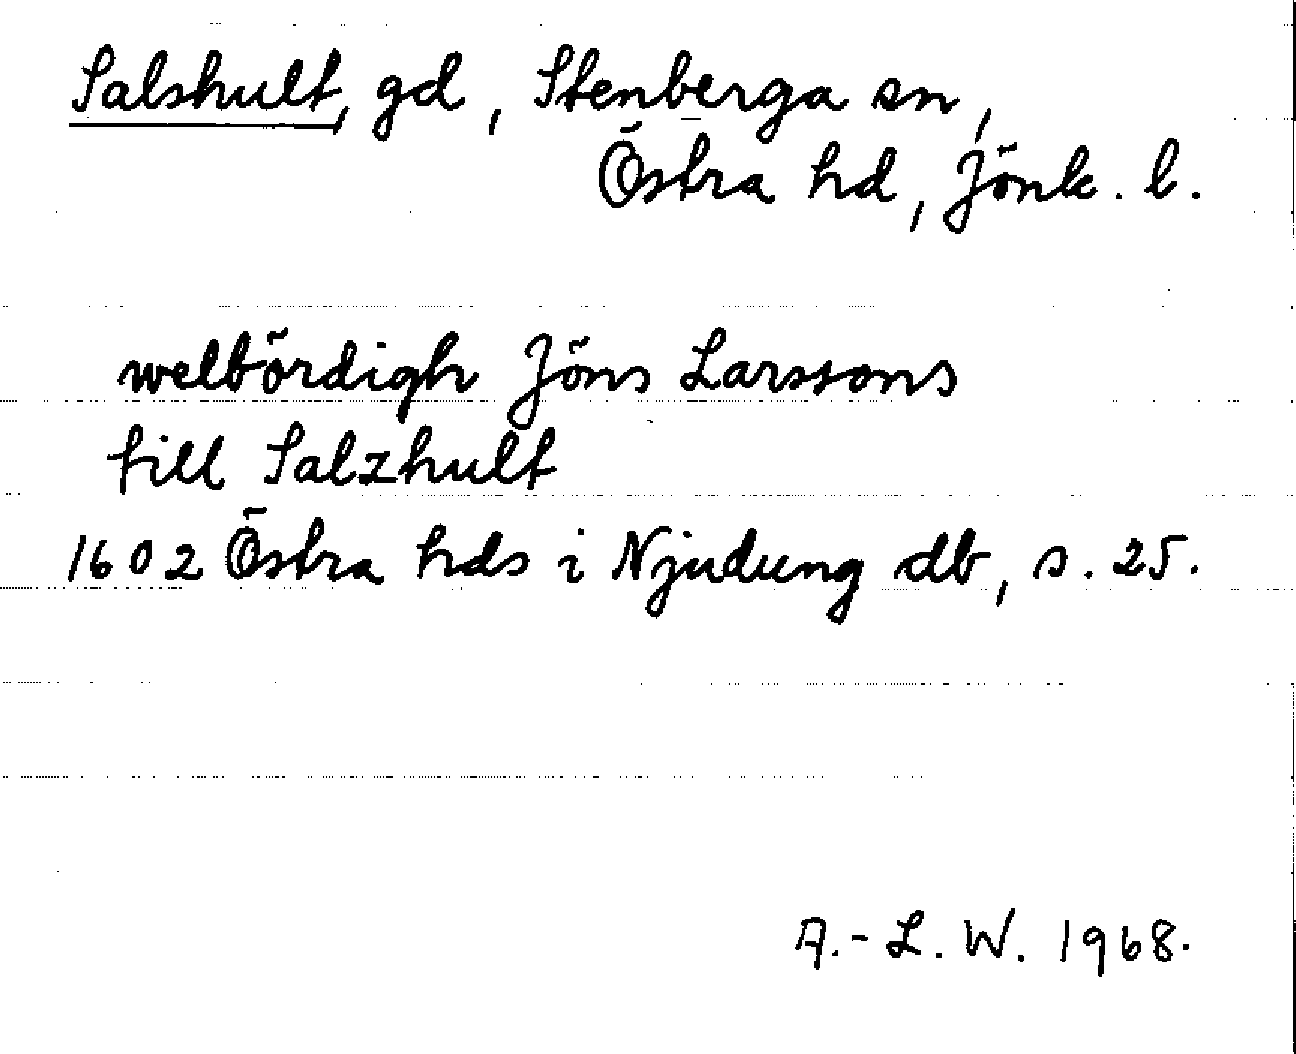 Salshult, gd, Stenberga sn,
Östra hd, Jönk. l.
welbördigh Jöns Larssons
till Salzhult
1602 Östra hds i Njudung db, s. 25.
A.-L. W. 1968.